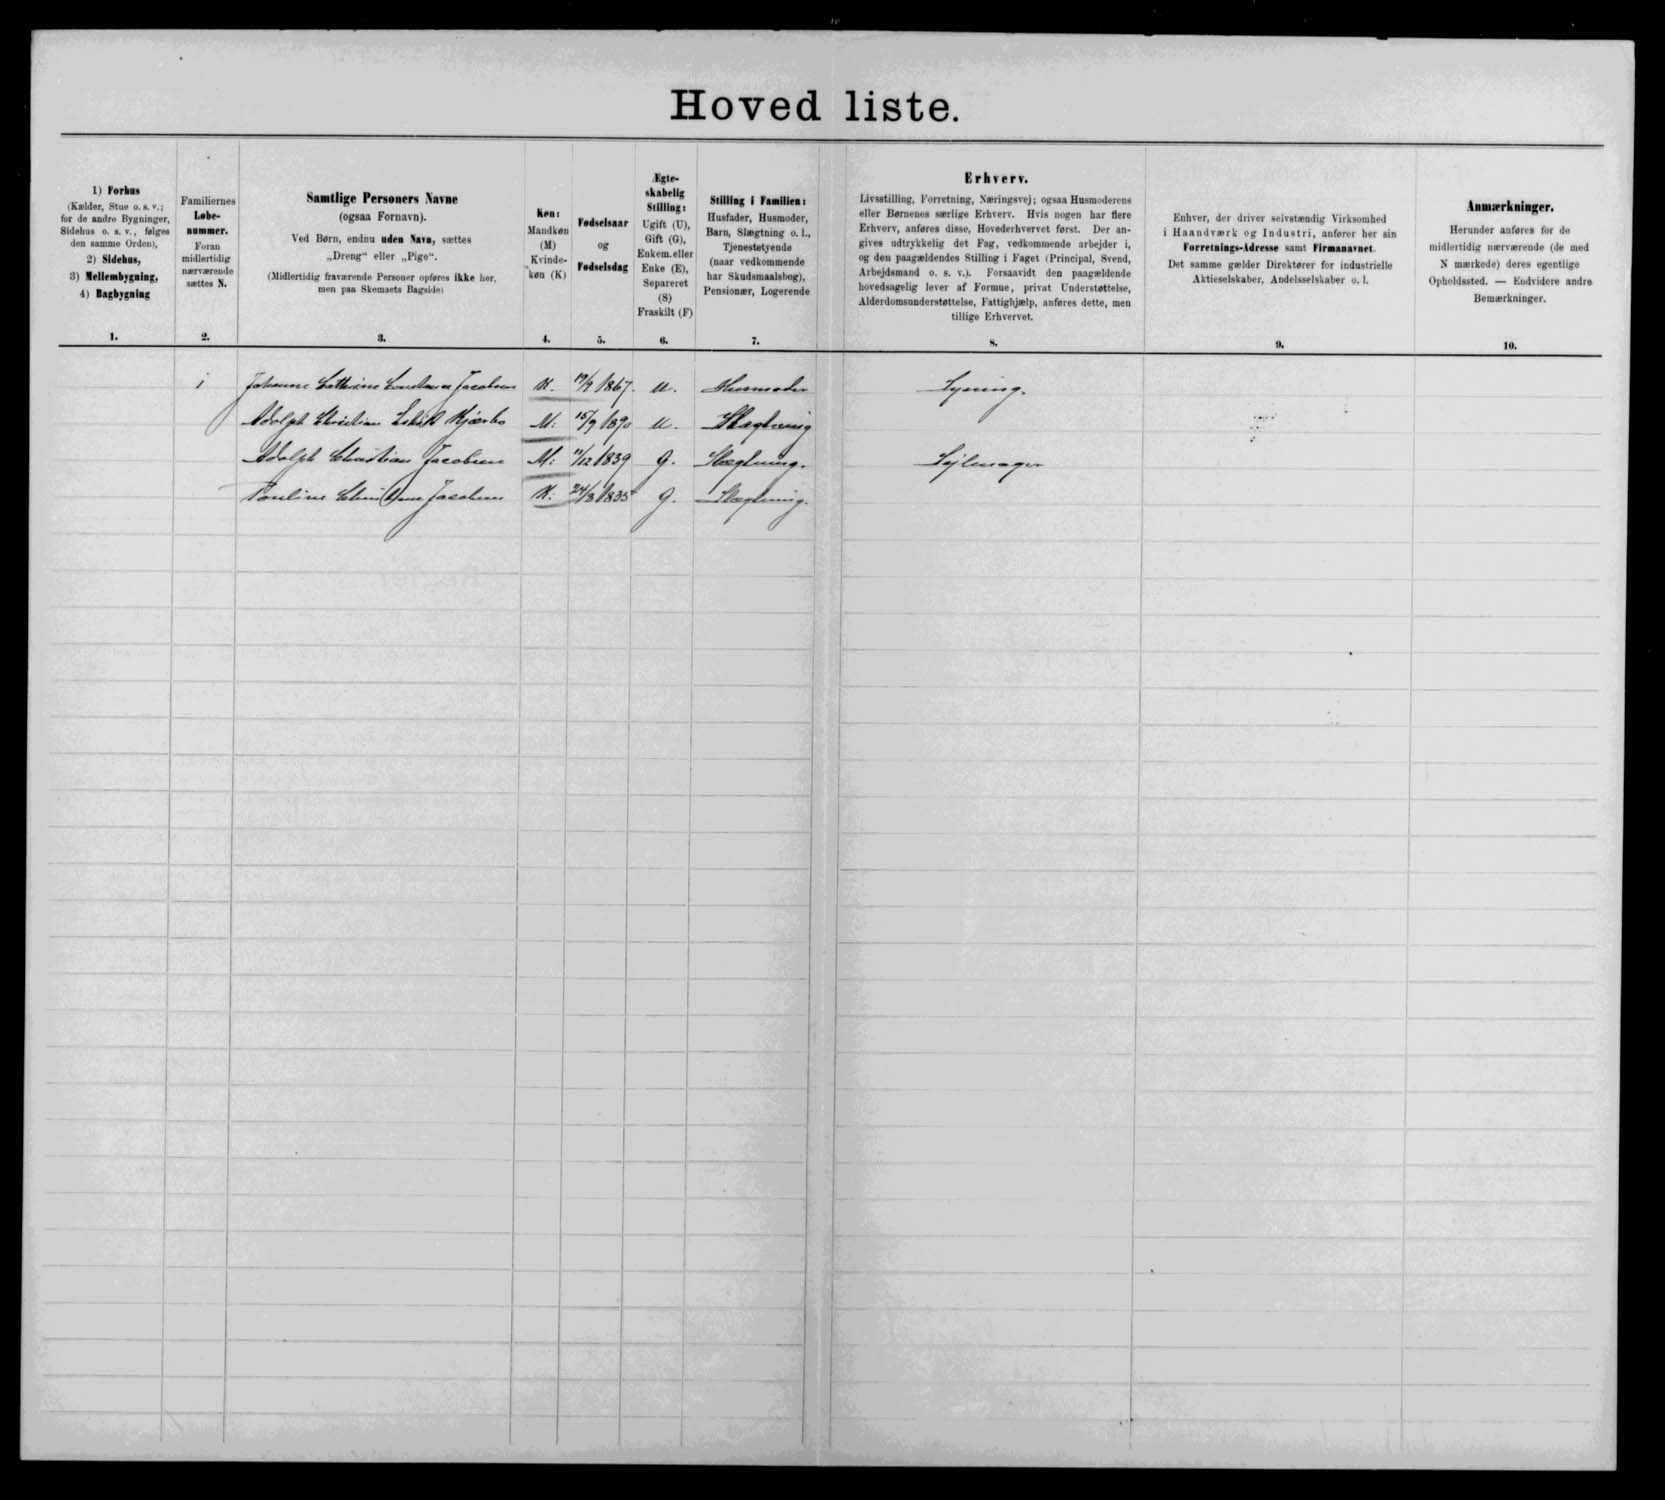 Hoved liste.
1) Forhus
(Kælder, Stue o. s. v.;
for de andre Bygninger,
Sidehus o. s. v., følges
den samme Orden),
2) Sidehus,
3) Mellembygning,
4) Bagbygning
1.
Familiernes
Løbe-
nummer.
Foran
midlertidig
nærværende
sættes N.
2.
Samtlige Personers Navne
(ogsaa Fornavn).
Ved Børn, endnu uden Navn, sættes
„Dreng" eller „Pige".
(Midlertidig fraværende Personer opføres ikke her,
men paa Skemaets Bagside)
3.
Køn:
Mandkøn
(M)
Kvinde-
køn (K)
4.
Fødselsaar
og
Fødselsdag
5.
Ægte-
skabelig
Stilling:
Ugift (U),
Gift (G),
Enkem. eller
Enke (E),
Separeret
(S)
Fraskilt (F)
6.
Stilling i Familien:
Husfader, Husmoder,
Barn, Slægtning o. l.,
Tjenestetyende
(naar vedkommende
har Skudsmaalsbog),
Pensionær, Logerende
7.
Erhverv.
Livsstilling, Forretning, Næringsvej; ogsaa Husmoderens
eller Børnenes særlige Erhverv. Hvis nogen har flere
Erhverv, anføres disse, Hovederhvervet først. Der an-
gives udtrykkelig det Fag, vedkommende arbejder i,
og den paagældendes Stilling i Faget (Principal, Svend,
Arbejdsmand o. s. v.). Forsaavidt den paagældende
hovedsagelig lever af Formue, privat Understøttelse,
Alderdomsunderstøttelse, Fattighjælp, anføres dette, men
tillige Erhvervet.
8.
Enhver, der driver selvstændig Virksomhed
i Haandværk og Industri, anfører her sin
Forretnings-Adresse samt Firmanavnet.
Det samme gælder Direktører for industrielle
Aktieselskaber, Andelsselskaber o. l.
9.
Anmærkninger.
Herunder anføres for de
midlertidig nærværende (de med
N mærkede) deres egentlige
Opholdssted. — Endvidere andre
Bemærkninger.
10.
1 Johanne Cathrine Jacobsen K. 1867. U. Husmoder Syning.
Adolph Christian Kjærbo M: 15/9 1890 U. Slægtning
Adolph Christian Jacobsen M: 11/12 1839 G. Slægtning. Sejlmager
Pauline Jacobsen K: 24/3 1835 G. Slægtning.